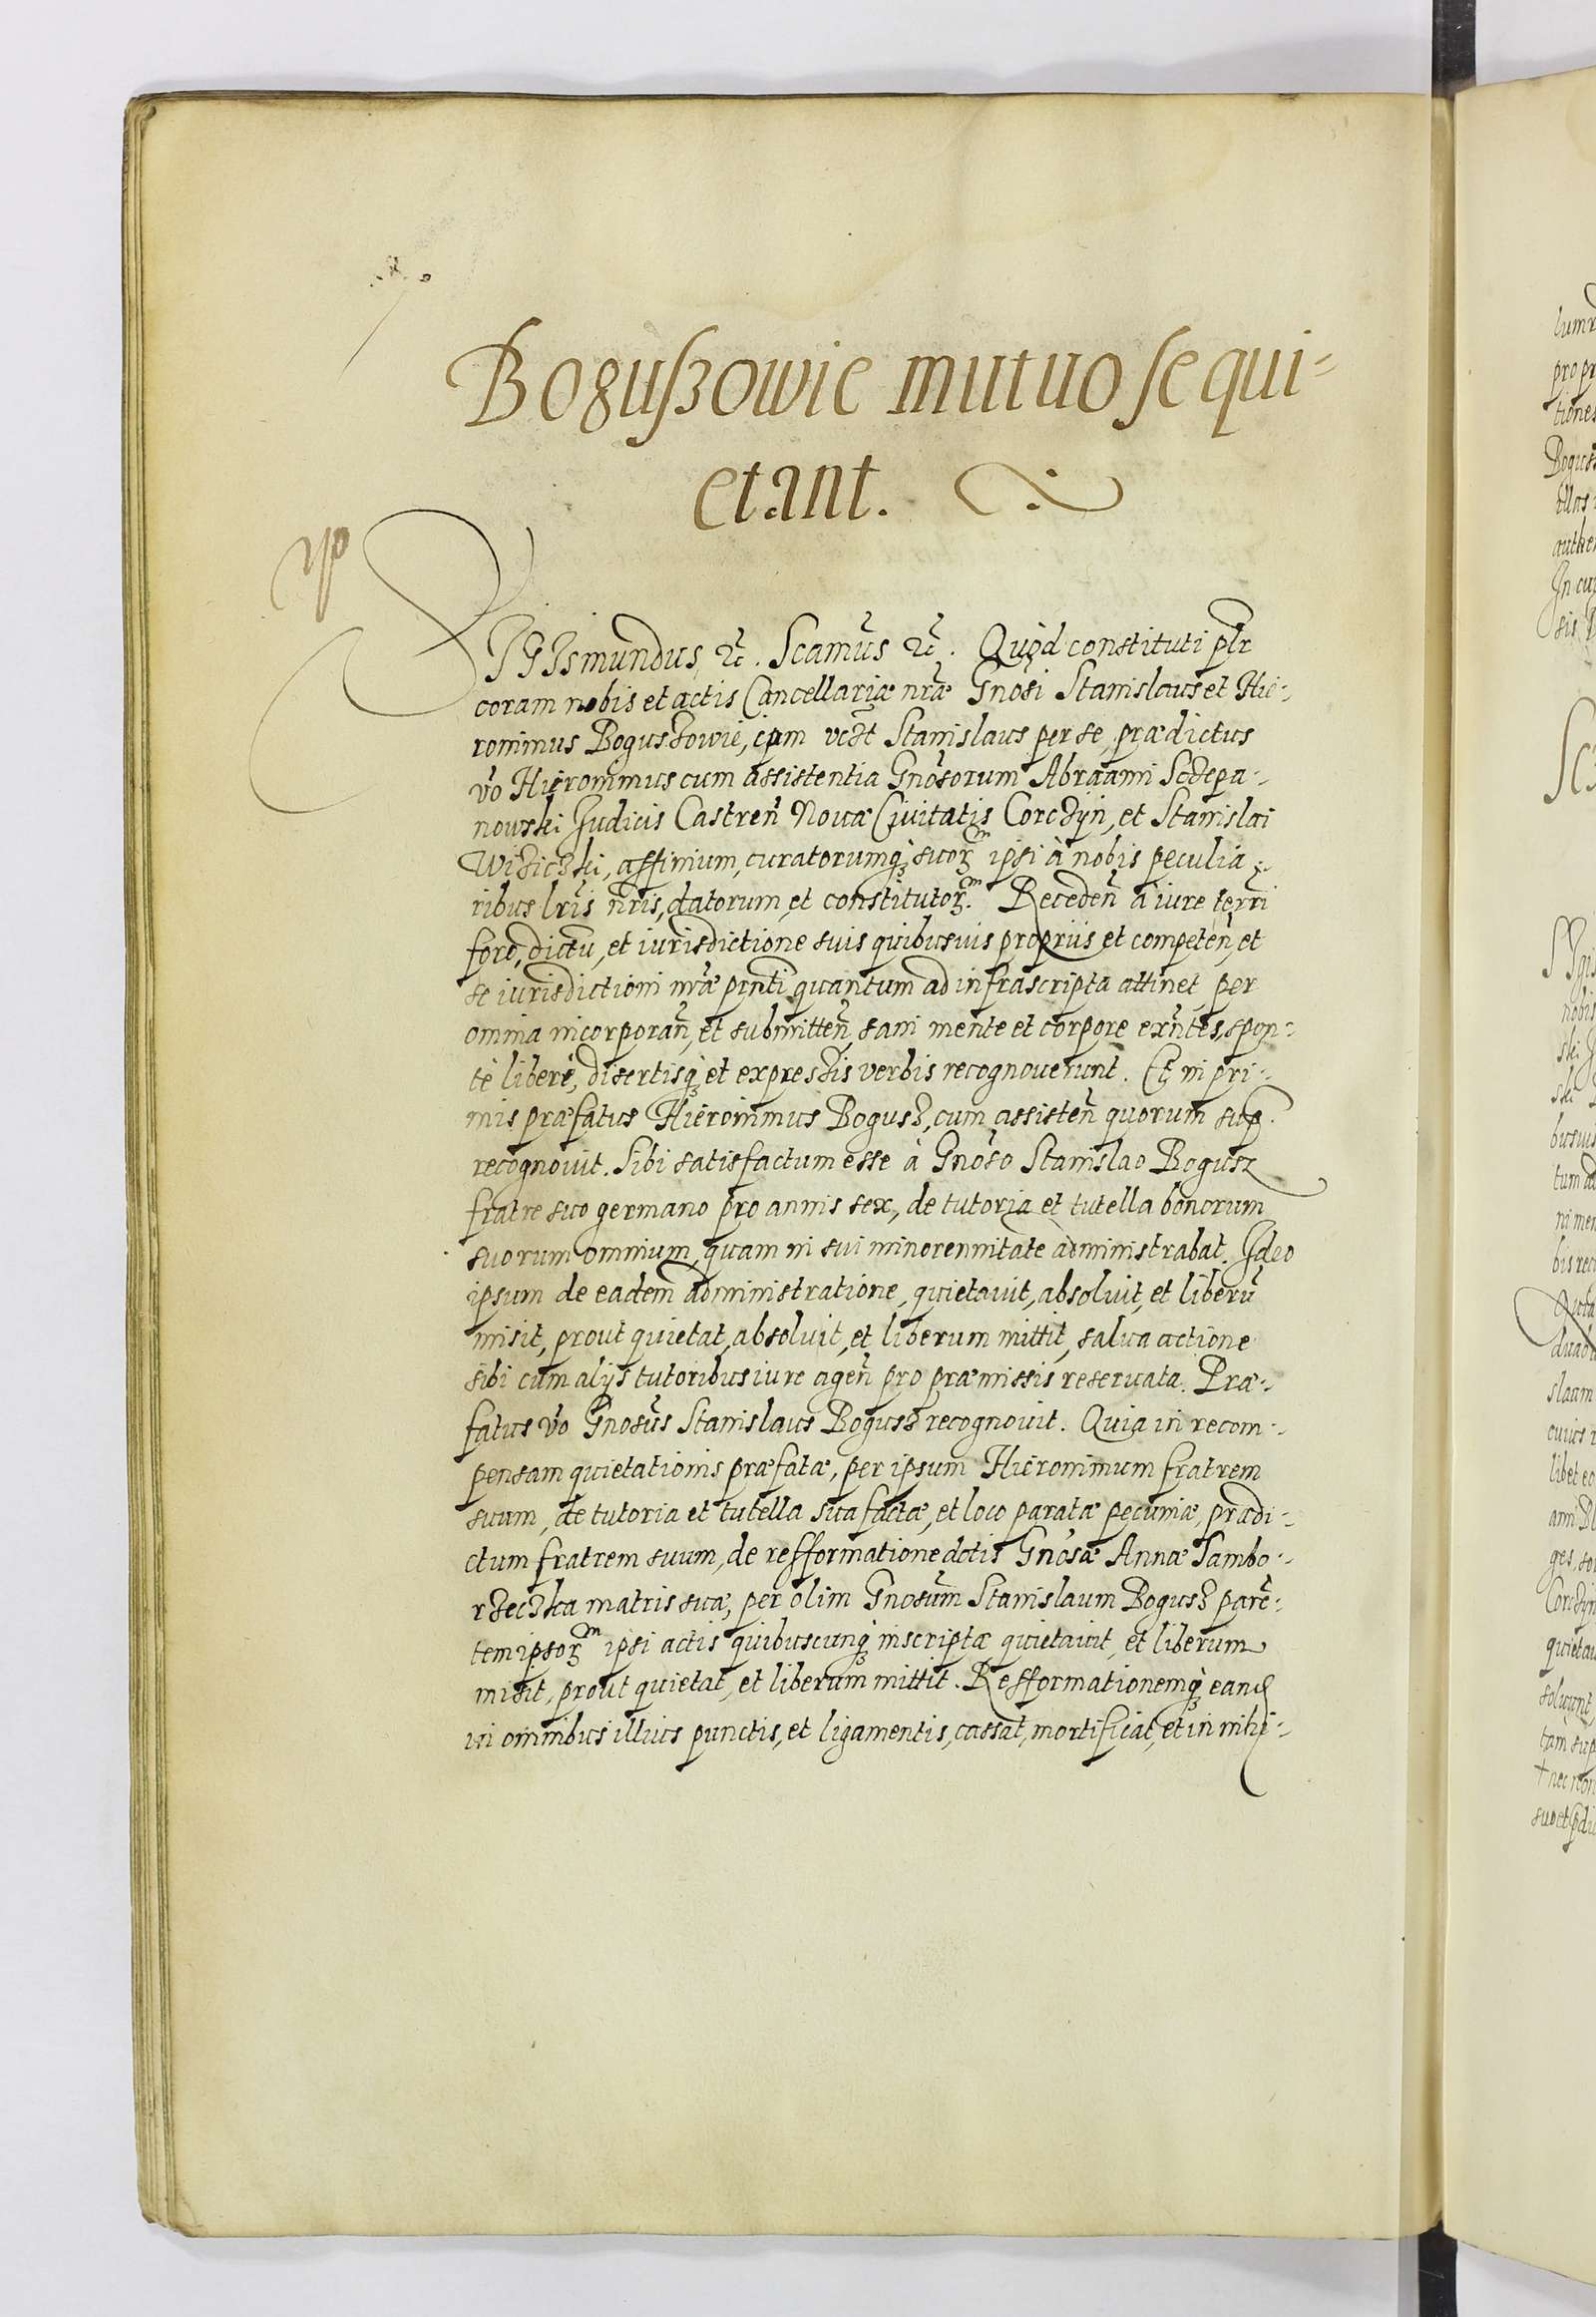 Boguszowie mutuo se qui-
etant.
SIGIsmundus etc. Scamus etc. Quod constituti plr
coram nobis et actis Cancellariæ nræ Gnosi Stanislaus et Hie-
ronimus Boguszowie, ipm vczt Stanislaus per se, prædictus
vo Hieronimus cum assistentia Gnosorum Abraami Sczepa-
nowski Judicis Castren Nouæ Ciuitatis Corczyn, et Stanislai
Wiziczki, affinium, curatorumq suorm ipsi à nobis peculia-
ribus lris nris, datorum et constitutorm. Receden a iure terri
foro, dictu, et iurisdictione suis quibusuis propriis et competen, et
se iurisdictioni nræ pnti quantum ad infrascripta attinet, per
omnia incorporan, et submitten, sani mente et corpore exntes, spon-
tè liberè, disertisq et expressis verbis recognouerunt. Et in pri-
mis præfatus Hieronimus Bogusz, cum assisten quorum sup.
recognouit. Sibi satisfactum esse à Gnoso Stanislao Bogusz
fratre suo germano pro annis sex, de tutoria et tutella bonorum
suorum omnium, quam in sui minorennitate administrabat. Ideo
ipsum de eadem administratione, quietauit, absoluit, et liberu
misit, prout quietat, absoluit, et liberum mittit, salua actione
sibi cum alijs tutoribus iure agen pro præmissis reseruata. Præ-
fatus vo Gnosus Stanislaus Bogusz recognouit. Quia in recom-
pensam quietationis præfatæ, per ipsum Hieronimum fratrem
suum, de tutoria et tutella sua factæ, et loco paratæ pecuniæ, prædi-
ctum fratrem suum, de refformatione dotis Gnosæ Annæ Sambo-
rzeczka matris suæ, per olim Gnosum Stanislaum Bogusz pare-
tem ipsorm ipsi actis quibuscunq inscriptæ quietauit, et liberum
misit, prout quietat, et liberum mittit. Refformationemq eand
in omnibus illius punctis, et ligamentis, cassat, mortificat, et in nihi-